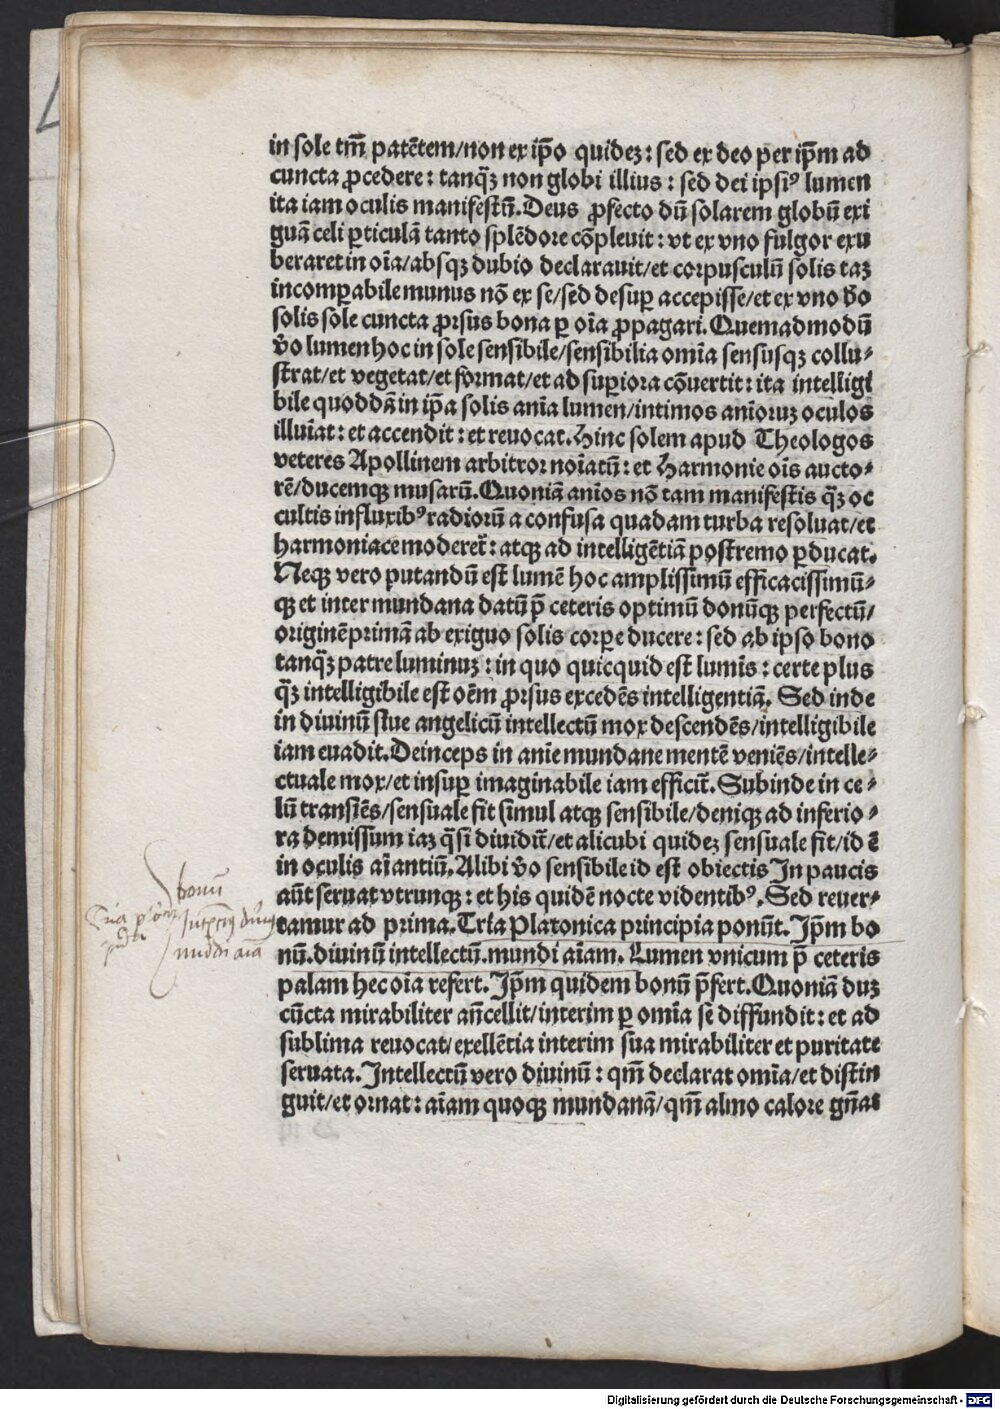 in sole tm̄ patētem/non ex ip̄o quideꝫ: sed ex deo per ip̄m ad
cuncta ꝓcedere: tanqꝫ̄ non globi illius: sed dei ipsiꝰ lumen
ita iam oculis manifestū. Deus ꝓfecto dū solarem globū exi
guā celi ꝑticulā tanto splēdore cōpleuit: vt ex vno fulgor exu
beraret in oīa/absqꝫ dubio declarauit/et corpusculū solis taꝫ
incomꝑabile munus nō ex se/sed desuꝑ accepisse/et ex vno v̄o
solis sole cuncta ꝓrsus bona ꝑ oīa ꝓpagari. Quemadmodū
v̄o lumen hoc in sole sensibile/sensibilia omīa sensusqꝫ collu⸗
strat/et vegetat/et format/et ad suꝑiora cōuertit: ita intelligi
bile quoddā in ip̄a solis anīa lumen/intimos anīoruꝫ oculos
illuīat: et accendit: et reuocat. Hinc solem apud Theologos
veteres Apollinem arbitror noīatū: et Harmonie oīs aucto⸗
rē/ducemqꝫ musarū. Quoniā anīos nō tam manifestis qꝫ̄ oc
cultis influxibꝰ radiorū a confusa quadam turba resoluat/et
harmoniace moderet̄: atqꝫ ad intelligētiā postremo ꝑducat.
Neqꝫ vero putandū est lumē hoc amplissimū efficacissimū⸗
qꝫ et inter mundana datū p̄ ceteris optimū donūqꝫ perfectū/
originē primā ab exiguo solis corꝑe ducere: sed ab ipso bono
tanqꝫ̄ patre luminuꝫ: in quo quicquid est lumīs: certe plus
qꝫ̄ intelligibile est oēm ꝓrsus excedēs intelligentiā. Sed inde
in diuinū siue angelicū intellectū mox descendēs/intelligibile
iam euadit. Deinceps in anīe mundane mentē veniēs/intelle⸗
ctuale mox/et insuꝑ imaginabile iam efficit̄. Subinde in ce⸗
lū transiēs/sensuale fit simul atqꝫ sensibile/deniqꝫ ad inferio⸗
ra demissum iaꝫ q̄si diuidit̄/et alicubi quideꝫ sensuale fit/id ē
in oculis aīantiū. Alibi v̄o sensibile id est obiectis In paucis
aūt seruat vtrunqꝫ: et his quidē nocte videntibꝰ. Sed reuer⸗
tamur ad prima. Tria Platonica principia ponūt. Ip̄m bo
nū. diuinū intellectū. mundi aīam. Lumen vnicum p̄ ceteris
palam hec oīa refert. Ip̄m quidem bonū p̄fert. Quoniā duꝫ
cūcta mirabiliter an̄cellit/interim ꝑ omīa se diffundit: et ad
sublima reuocat/exellētia interim sua mirabiliter et puritate
seruata. Intellectū vero diuinū: qm̄ declarat omīa/et distin
guit/et ornat: aīam quoqꝫ mundanā/qm̄ almo calore gn̄at
bonū
mūdi aīa
Digitalisierung gefördert durch die Deutsche Forschungsgemeinschaft - DFG